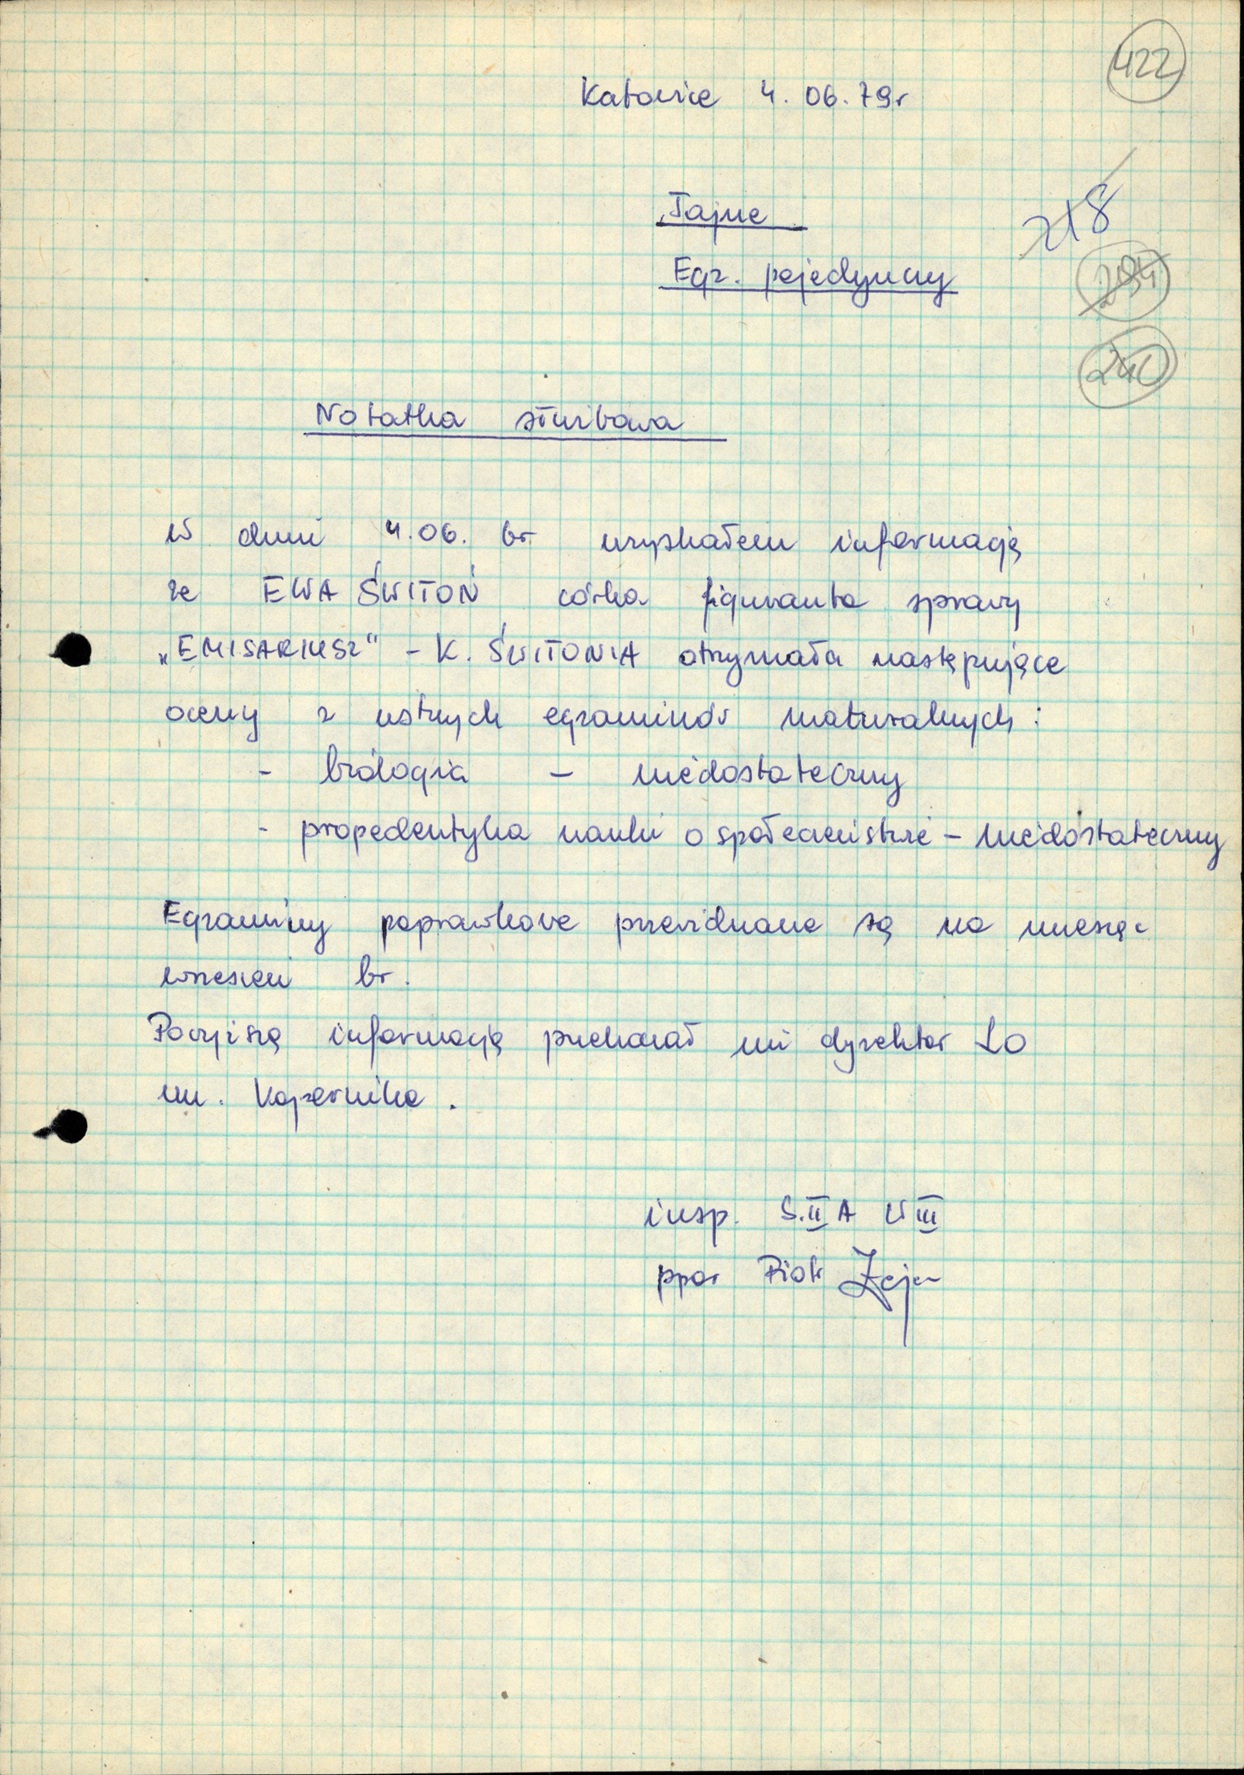 422
Katowice 4.06.79r
Tajne
218
Egz. pojedynczy
294
240
Notatka służbowa
W dniu 4.06. br uzyskałem informację
że EWA ŚWITOŃ córka figuranta sprawy
„EMISARIUSZ" - K. ŚWITONIA otrzymała następujące
oceny z ustnych egzaminów maturalnych:
- biologia - niedostateczny
- propedeutyka nauki o społeczeństwie - niedostateczny
Egzaminy poprawkowe przewidziane są na miesiąc
wrzesień br.
Powyższą informację przekazał mi dyrektor LO
im. Kopernika.
insp. S.II A W III
ppor Piotr